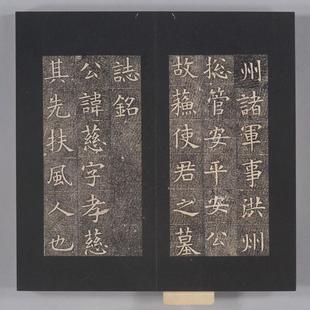 州諸軍事洪州
揔管安平安公
故蘓使君之墓
誌銘
公諱慈字孝慈
其先扶風人也